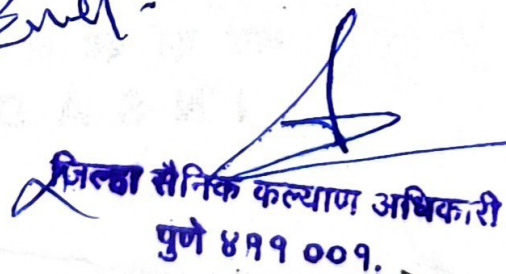 Encl -
जिल्हा सैनिक कल्याण अधिकारी
पुणे ४११ ००१.